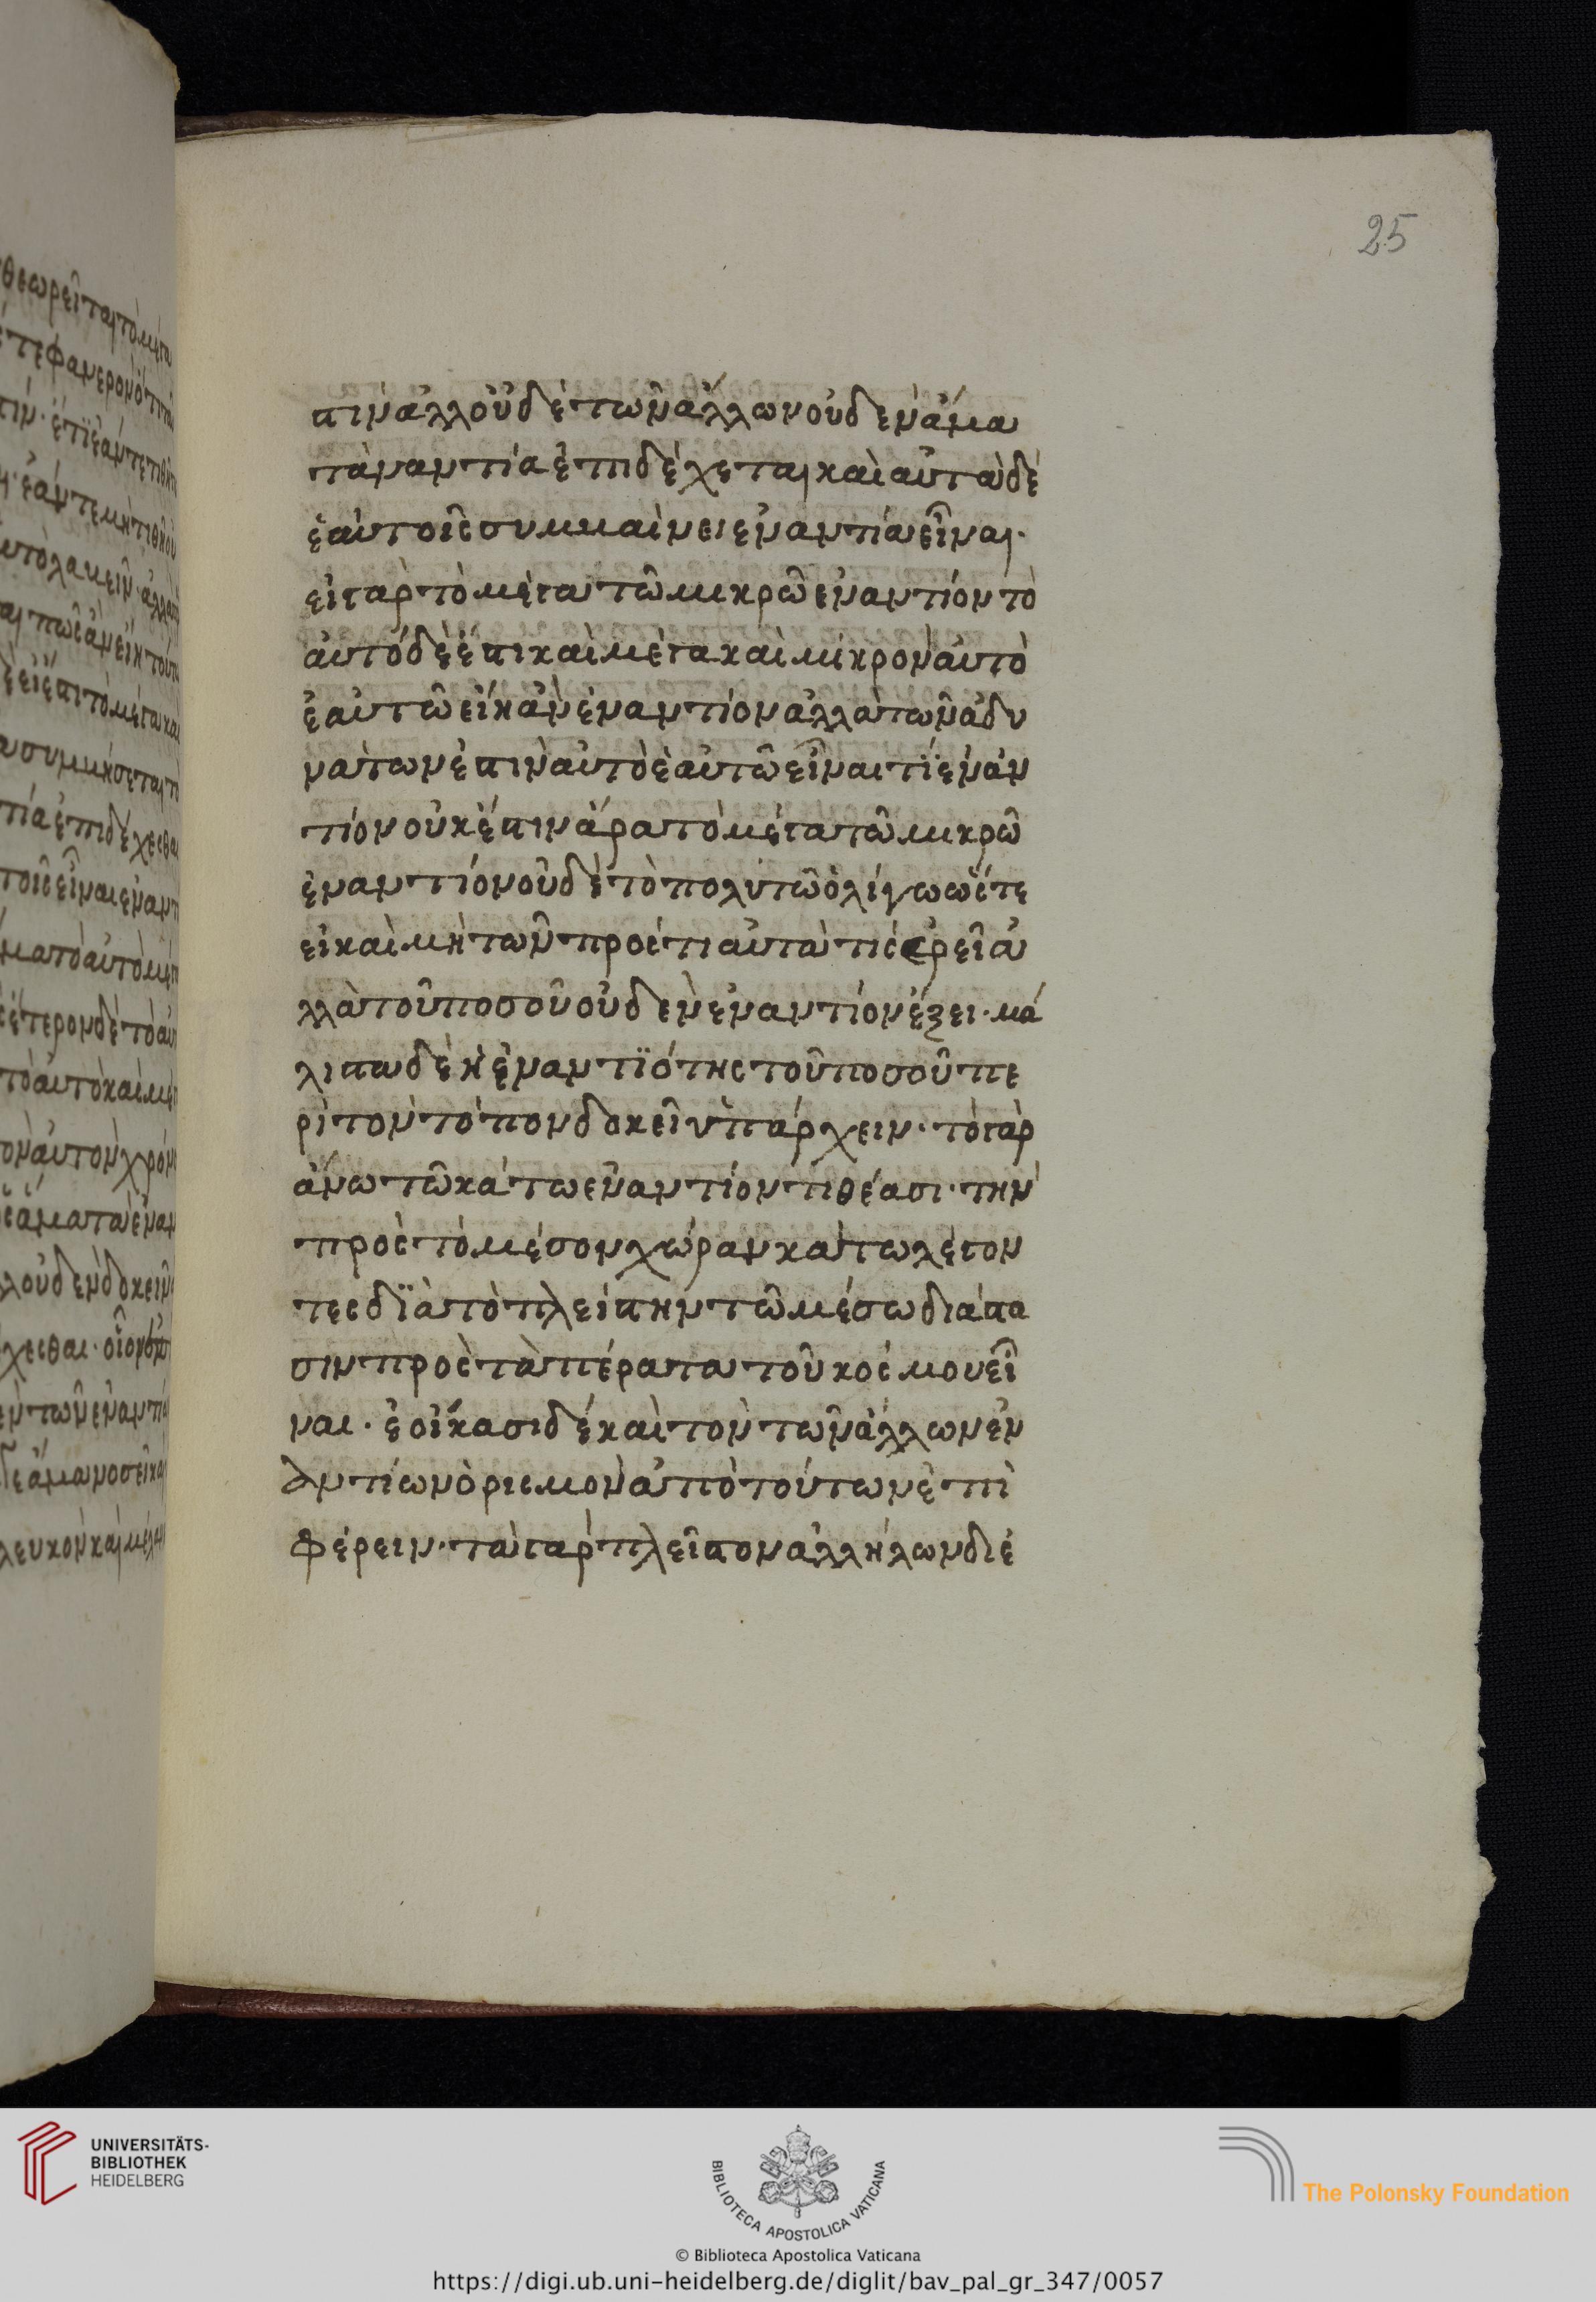 25
στιν ἀλλ οὐδὲ τῶν ἄλλων οὐδὲν ἅμα
τὰναντία ἐπιδέχεται καὶ αὐτὰ δὲ
ἑαυτοῖς συμβαίνει ἐναντία εἶναι·
εἰ γὰρ τὸ μέγα τῶ μικρῶ ἐναντίον τὸ
αὐτὸ δέ ἐστι καὶ μέγα καὶ μικρὸν αὐτὸ
ἑαυτῶ εἴη ἂν ἐναντίον ἀλλὰ τῶν ἀδυ
νάτων ἐστὶν αὐτὸ ἑαυτῶ εἶναι τϊ ἐναν
τίον οὐκ ἔστιν ἄρα τὸ μέγα τῶ μικρῶ
ἐναντίον οὐδὲ τὸ πολὺ τῶ ὀλίγω ὥστε
εἰ καὶ μὴ τῶν πρός τι αὐτὰ τίς ἐρεῖ ἀ
λλὰ τοῦ ποσοῦ οὐδὲν ἐναντίον ἕξει· μά
λιστα δὲ ἡ ἐναντϊότης τοῦ ποσοῦ πε
ρὶ τὸν τόπον δοκεῖ ὑπάρχειν· τὸ γὰρ
ἄνω τῶ κάτω ἐναντίον τιθέασι· τὴν
πρὸς τὸ μέσον χώραν κάτω λέγον
τες δϊὰ τὸ πλείστην τῶ μέσω διάστα
σιν πρὸς τὰ πέρατα τοῦ κόσμου εἶ
ναι· ἐοίκασι δὲ καὶ τὸν τῶν ἄλλων ἐν
αντίων ὁρισμὸν ἀπὸ τούτων ἐπι
φέρειν· τὰ γὰρ πλεῖστον ἀλλήλων διε
UNIVERSITÄTS-
BIBLIOTHEK
HEIDELBERG
BIBLIOTECA APOSTOLICA VATICANA
The Polonsky Foundation
© Biblioteca Apostolica Vaticana
https://digi.ub.uni-heidelberg.de/diglit/bav_pal_gr_347/0057